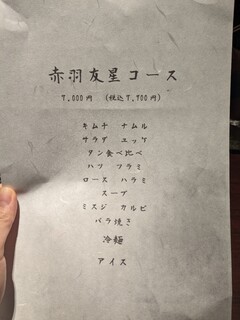 赤羽友星コース
7,000円 (税込7,700円)
キムチ ナムル
サラダ ユッケ
タン食べ比べ
ハツ ツラミ
ロース ハラミ
スープ
ミスジ カルビ
バラ焼き
冷麺
アイス